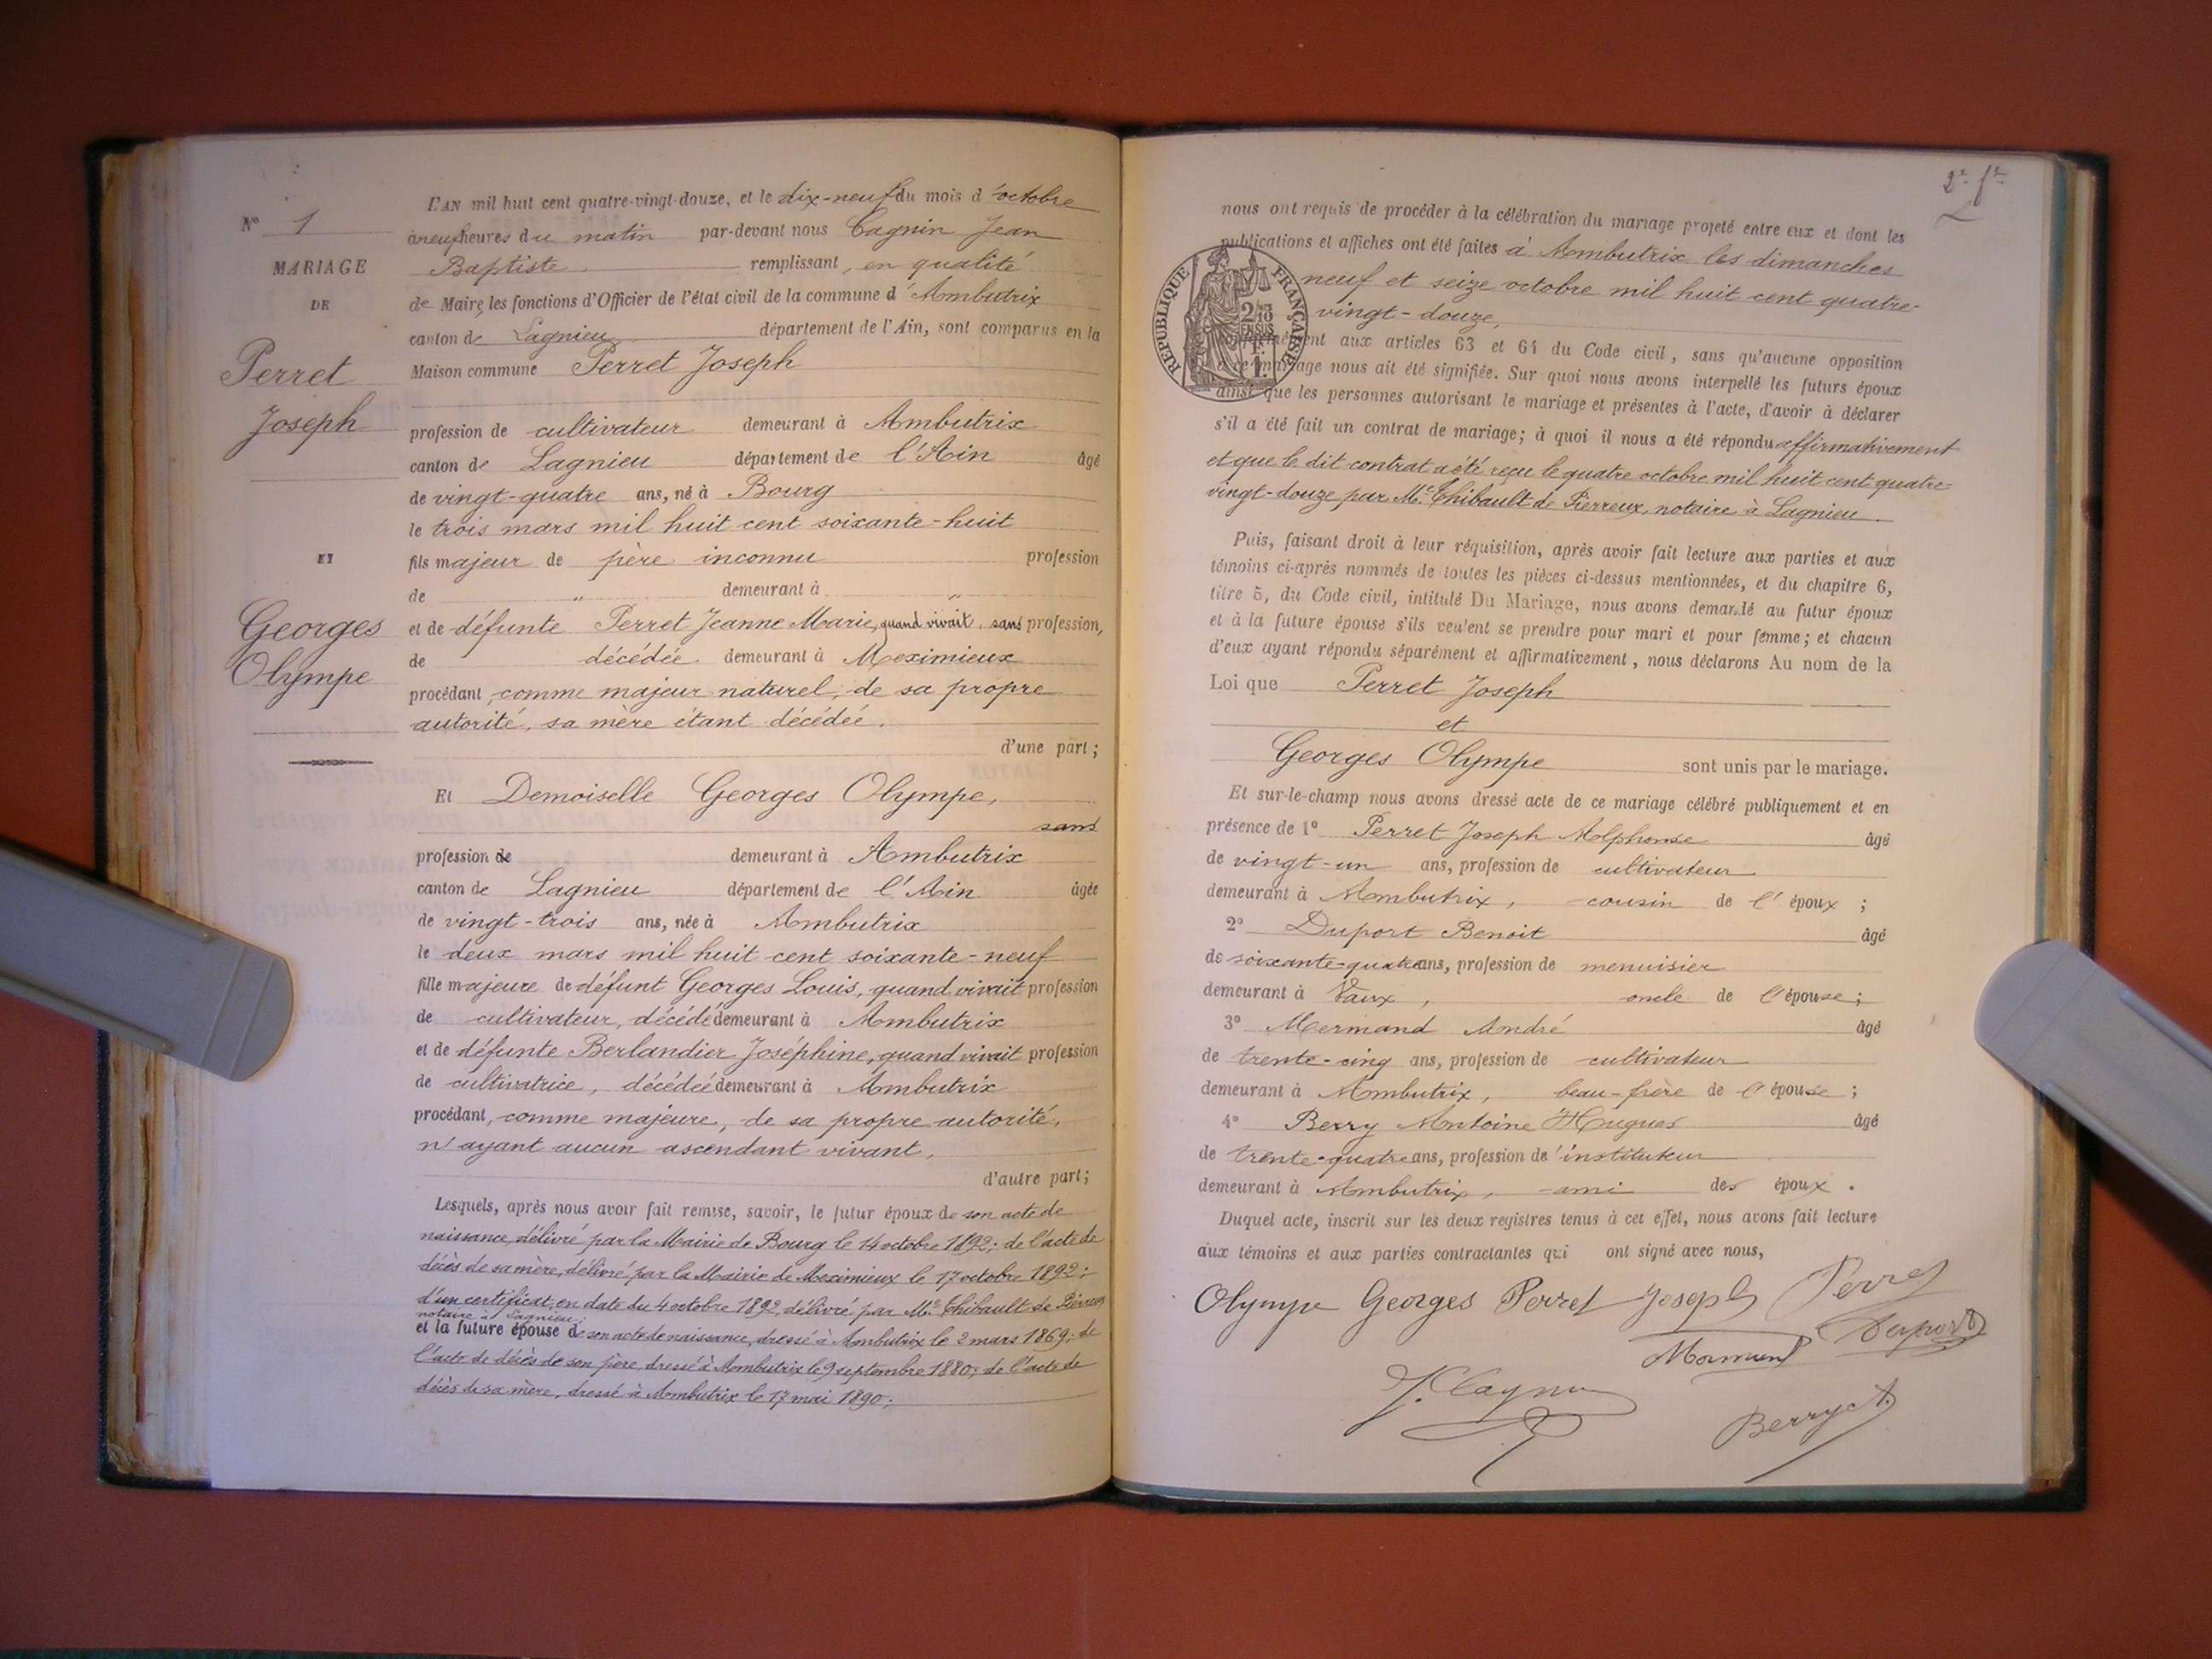 L'AN mil huit cent quatre-vingt-douze, et le dix-neuf du mois d'octobre
N° 1
à neuf heures du matin par-devant nous Cagnin Jean
MARIAGE
Baptiste remplissant, en qualité
DE
de Maire, les fonctions d'Officier de l'état civil de la commune d'Ambutrix
canton de Lagnieu département de l'Ain, sont comparus en la
Perret
Maison commune Perret Joseph
Joseph
profession de cultivateur demeurant à Ambutrix
canton de Lagnieu département de l'Ain âgé
de vingt-quatre ans, né à Bourg
le trois mars mil huit cent soixante-huit
ET
fils majeur de père inconnu profession
de " demeurant à "
Georges
et de défunte Perret Jeanne Marie, quand vivait, sans profession,
Olympe
de décédée demeurant à Meximieux
procédant, comme majeur naturel, de sa propre
autorité, sa mère étant décédée.
d'une part ;
Et Demoiselle Georges Olympe,
sans
profession de demeurant à Ambutrix
canton de Lagnieu département de l'Ain âgée
de vingt-trois ans, née à Ambutrix
le deux mars mil huit cent soixante-neuf
fille majeure de défunt Georges Louis, quand vivait profession
de cultivateur, décédé demeurant à Ambutrix
et de défunte Berlandier Joséphine, quand vivait profession
de cultivatrice, décédée demeurant à Ambutrix
procédant, comme majeure, de sa propre autorité,
n'ayant aucun ascendant vivant,
d'autre part ;
Lesquels, après nous avoir fait remise, savoir, le futur époux de son acte de
naissance, délivré par la Mairie de Bourg le 14 octobre 1892 ; de l'acte de
décès de sa mère, délivré par la Mairie de Meximieux le 17 octobre 1892 ;
d'un certificat, en date du 4 octobre 1892, délivré par Me Thibault de Pierreux
notaire à Lagnieu ;
et la future épouse de son acte de naissance, dressé à Ambutrix le 2 mars 1869 ; de
l'acte de décès de son père, dressé à Ambutrix le 9 septembre 1880 ; de l'acte de
décès de sa mère, dressé à Ambutrix le 17 mai 1890 ;
2e ft
nous ont requis de procéder à la célébration du mariage projeté entre eux et dont les
publications et affiches ont été faites à Ambutrix les dimanches
neuf et seize octobre mil huit cent quatre-
vingt-douze,
REPUBLIQUE FRANÇAISE
conformément aux articles 63 et 64 du Code civil, sans qu'aucune opposition
à ce mariage nous ait été signifiée. Sur quoi nous avons interpellé les futurs époux
ainsi que les personnes autorisant le mariage et présentes à l'acte, d'avoir à déclarer
s'il a été fait un contrat de mariage ; à quoi il nous a été répondu affirmativement
et que le dit contrat a été reçu le quatre octobre mil huit cent quatre-
vingt-douze par Me Thibault de Pierreux, notaire à Lagnieu.
Puis, faisant droit à leur réquisition, après avoir fait lecture aux parties et aux
témoins ci-après nommés de toutes les pièces ci-dessus mentionnées, et du chapitre 6,
titre 5, du Code civil, intitulé Du Mariage, nous avons demandé au futur époux
et à la future épouse s'ils veulent se prendre pour mari et pour femme ; et chacun
d'eux ayant répondu séparément et affirmativement, nous déclarons Au nom de la
Loi que Perret Joseph
et
Georges Olympe sont unis par le mariage.
Et sur-le-champ nous avons dressé acte de ce mariage célébré publiquement et en
présence de 1° Perret Joseph Alphonse âgé
de vingt-un ans, profession de cultivateur
demeurant à Ambutrix, cousin de l'époux ;
2° Duport Benoit âgé
de soixante-quatre ans, profession de menuisier
demeurant à Vaux, oncle de l'épouse ;
3° Mermand André âgé
de trente-cinq ans, profession de cultivateur
demeurant à Ambutrix, beau-frère de l'épouse ;
4° Berry Antoine Hugues âgé
de trente-quatre ans, profession de instituteur
demeurant à Ambutrix, ami des époux.
Duquel acte, inscrit sur les deux registres tenus à cet effet, nous avons fait lecture
aux témoins et aux parties contractantes qui ont signé avec nous,
Olympe Georges Perret Joseph Perret
Duport